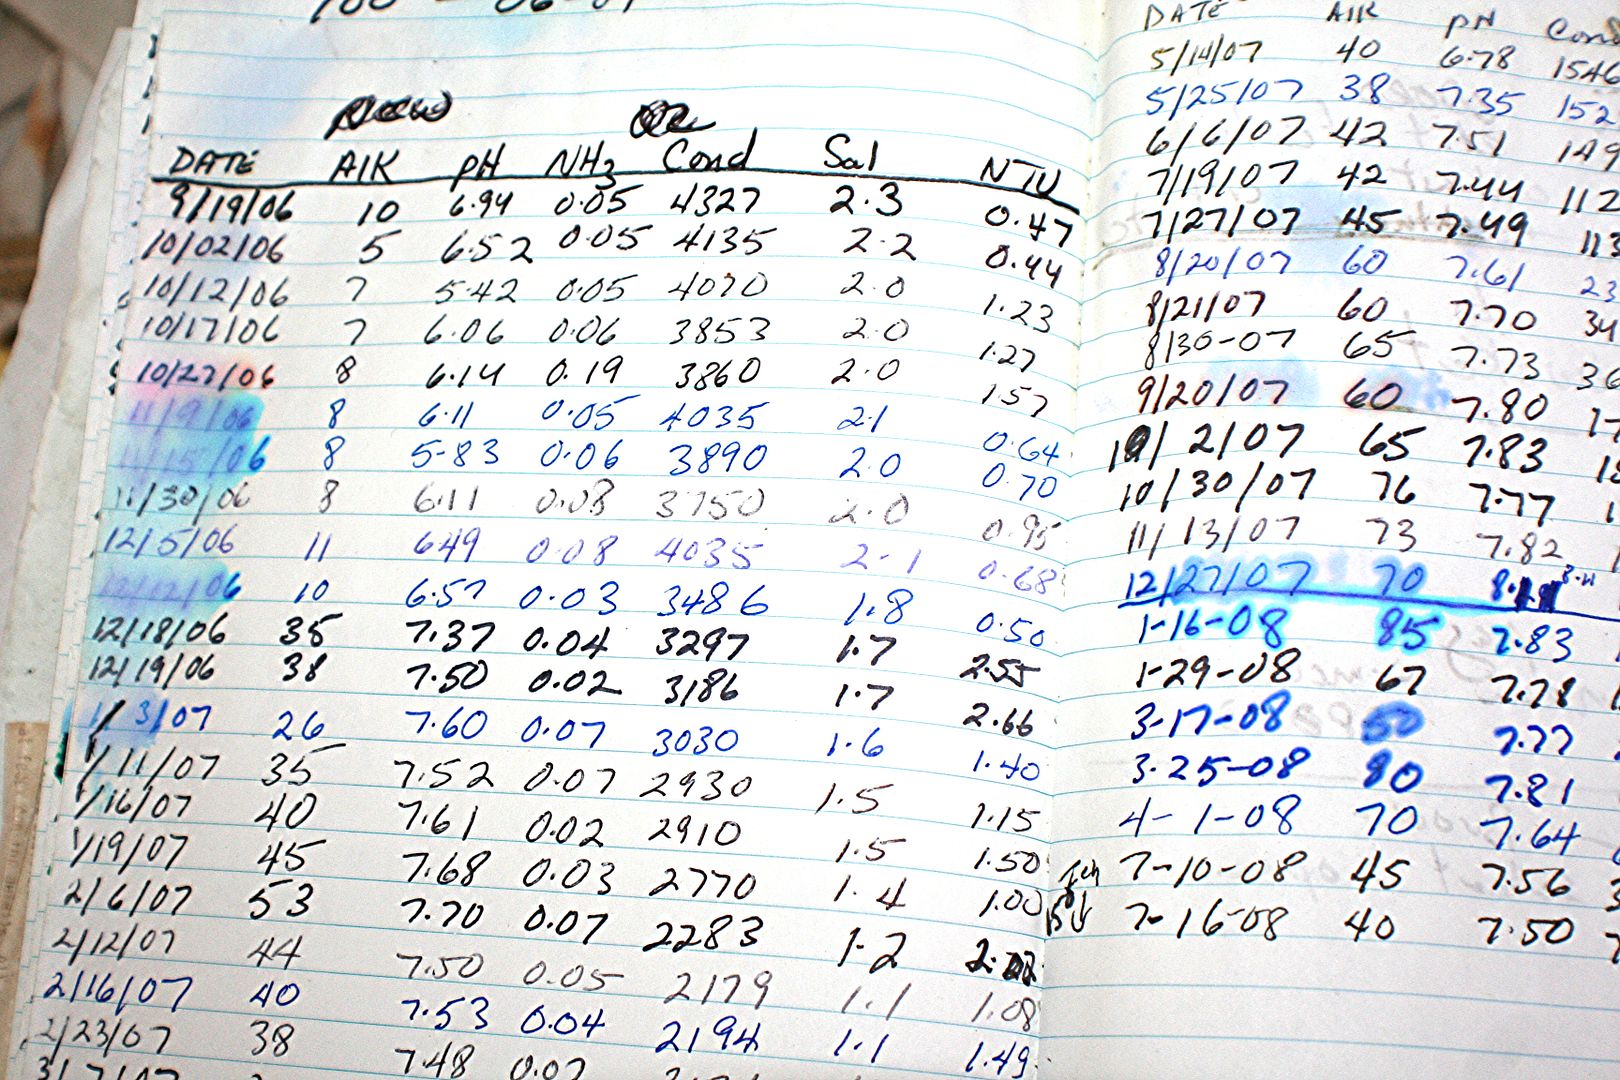 DATE AlK pH NH3 Cond Sal NTU
9/19/06 10 6.94 0.05 4327 2.3 0.47
10/02/06 5 6.52 0.05 4135 2.2 0.44
10/12/06 7 5.42 0.05 4070 2.0 1.23
10/17/06 7 6.06 0.06 3853 2.0 1.27
10/27/06 8 6.14 0.19 3860 2.0 1.57
11/9/06 8 6.11 0.05 4035 2.1 0.64
11/15/06 8 5.83 0.06 3890 2.0 0.70
11/30/06 8 6.11 0.08 3750 2.0 0.95
12/5/06 11 6.49 0.08 4035 2.1 0.68
12/12/06 10 6.57 0.03 3486 1.8 0.50
12/18/06 35 7.37 0.04 3297 1.7 2.55
12/19/06 38 7.50 0.02 3186 1.7 2.66
1/3/07 26 7.60 0.07 3030 1.6 1.40
1/11/07 35 7.52 0.07 2930 1.5 1.15
1/16/07 40 7.61 0.02 2910 1.5 1.50
1/19/07 45 7.68 0.03 2770 1.4 1.00
2/6/07 53 7.70 0.07 2283 1.2
2/12/07 44 7.50 0.05 2179 1.1 1.08
2/16/07 40 7.53 0.04 2194 1.1 1.49
2/23/07 38 7.48 0.07
DATE AlK pH Cond
5/14/07 40 6.78 1546
5/25/07 38 7.35 152
6/6/07 42 7.51 149
7/19/07 42 7.44 112
7/27/07 45 7.49 113
8/20/07 60 7.61 23
8/21/07 60 7.70 34
8/30-07 65 7.73 36
9/20/07 60 7.80 17
10/2/07 65 7.83
10/30/07 76 7.77
11/13/07 73 7.82
12/27/07 70
1-16-08 85 7.83
1-29-08 67 7.78
3-17-08 50 7.77
3-25-08 80 7.81
4-1-08 70 7.64
7-10-08 45 7.56
7-16-08 40 7.50